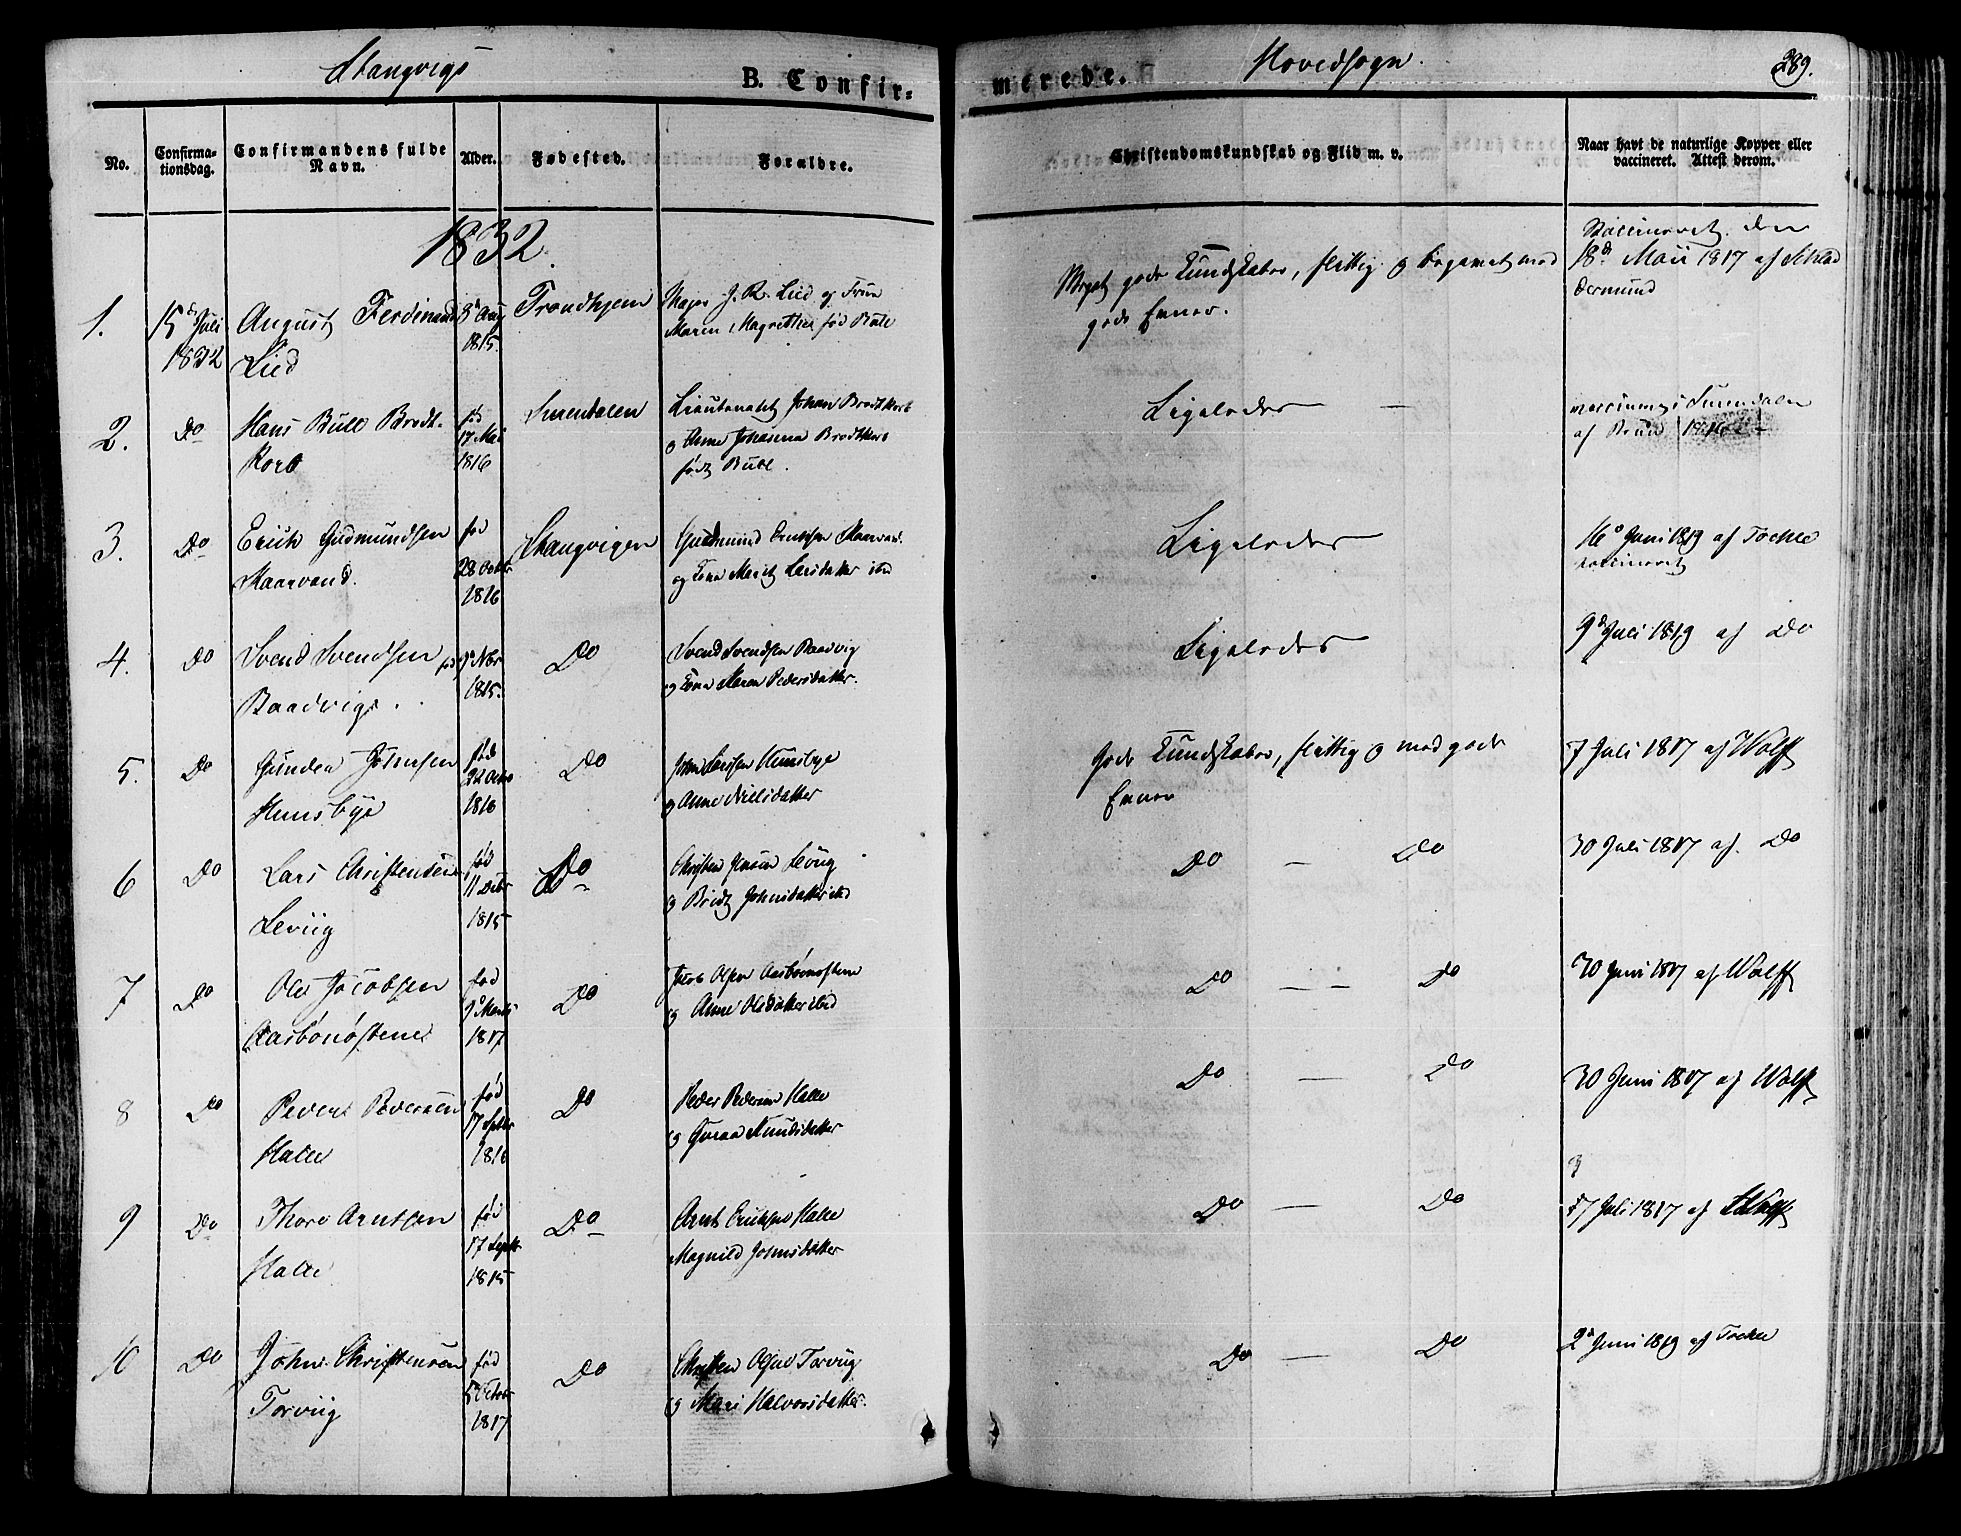 Stangvigs
B. Confir-
merede.
Hovedsogn.
289.
No.
Confirma-
tionsdag.
Confirmandens fulde
Navn.
Alder.
Fødested.
Forældre.
Christendomskundskab og Flid m. v.
Naar havt de naturlige Kopper eller
vaccineret. Attest derom.
1832.
1.
15 d Juli
1832
August Ferdinand
Lied
8 d Aug
1815.
Trondhjem
Major J. R. Lied og Frue
Maren Magrethe fød Bull
Meget gode Kundskaber, flittig og begavet med
gode Evner.
Vaccineret den
18 d Maii 1817 af
2.
Do
Hans Bull Brodt-
korb
fød
17 Mai
1816
Surendalen
Lieutenant Johan Brodtkorb
og Anne Johanna Brodtkorb
født Bull.
Ligeledes —
Surendalen
af
3.
Do
Erich Gudmundsen
Kaarvand.
fød
28 Octbr
1816
Stangvigen
Gudmund Erichsen Kaarvand
og Kone Marit Larsdatter ibd
Ligeledes
16 d Juni 1819 af Tockle
vaccineret
4.
Do
Svend Svendsen
Baadvigs.
fød 9 d Nbr
1815.
Do
Svend Svendsen Baadvig
og Kone Maren Pedersdatter.
Ligeledes
9 d Juli 1819 af Do
5.
Do
Gunder Johnsen
Humsbye
fød
22 Octbr
1816
Do
John Larsen Humsbye
og Anne Nielsdatter
Gode Kundskaber, flittig og med gode
Evner
7 Juli 1817 af Wolff
6
Do
Lars Christensen
Leviig
fød
11 Decbr
1815
Do
Christen Jensen Leviig
og Bridt Johnsdatter ibd
Do — Do
30 Juli 1817 af Do
7
Do
Ole Jacobsen
Aasbönöstene
fød
9 d Marts
1817
Do
Jacob Olsen Aasbönöstene
og Anne Olsdatter ibid
Do — — Do
30 Juni 1817 af Wolff
8
Do
Peder Pedersen
Halle
fød
17 Septbr
1816
Do
Peder Pedersen Halle
og Guroe Knudsdatter
Do — Do
30 Juni 1817 af Wolff
9
Do
Thore Arntsen
Halle
fød
17 Septbr
1815
Do
Arnt Erichsen Halle
Magnild Johnsdatter
Do — Do
7 Juli 1817 af Wolff
10
Do
John Christensen
Torviig
fød
5 October
1817
Do
Christen Olsen Torviig
og Mari Halvorsdatter.
Do — Do
2 d Juni 1819 af Tockle